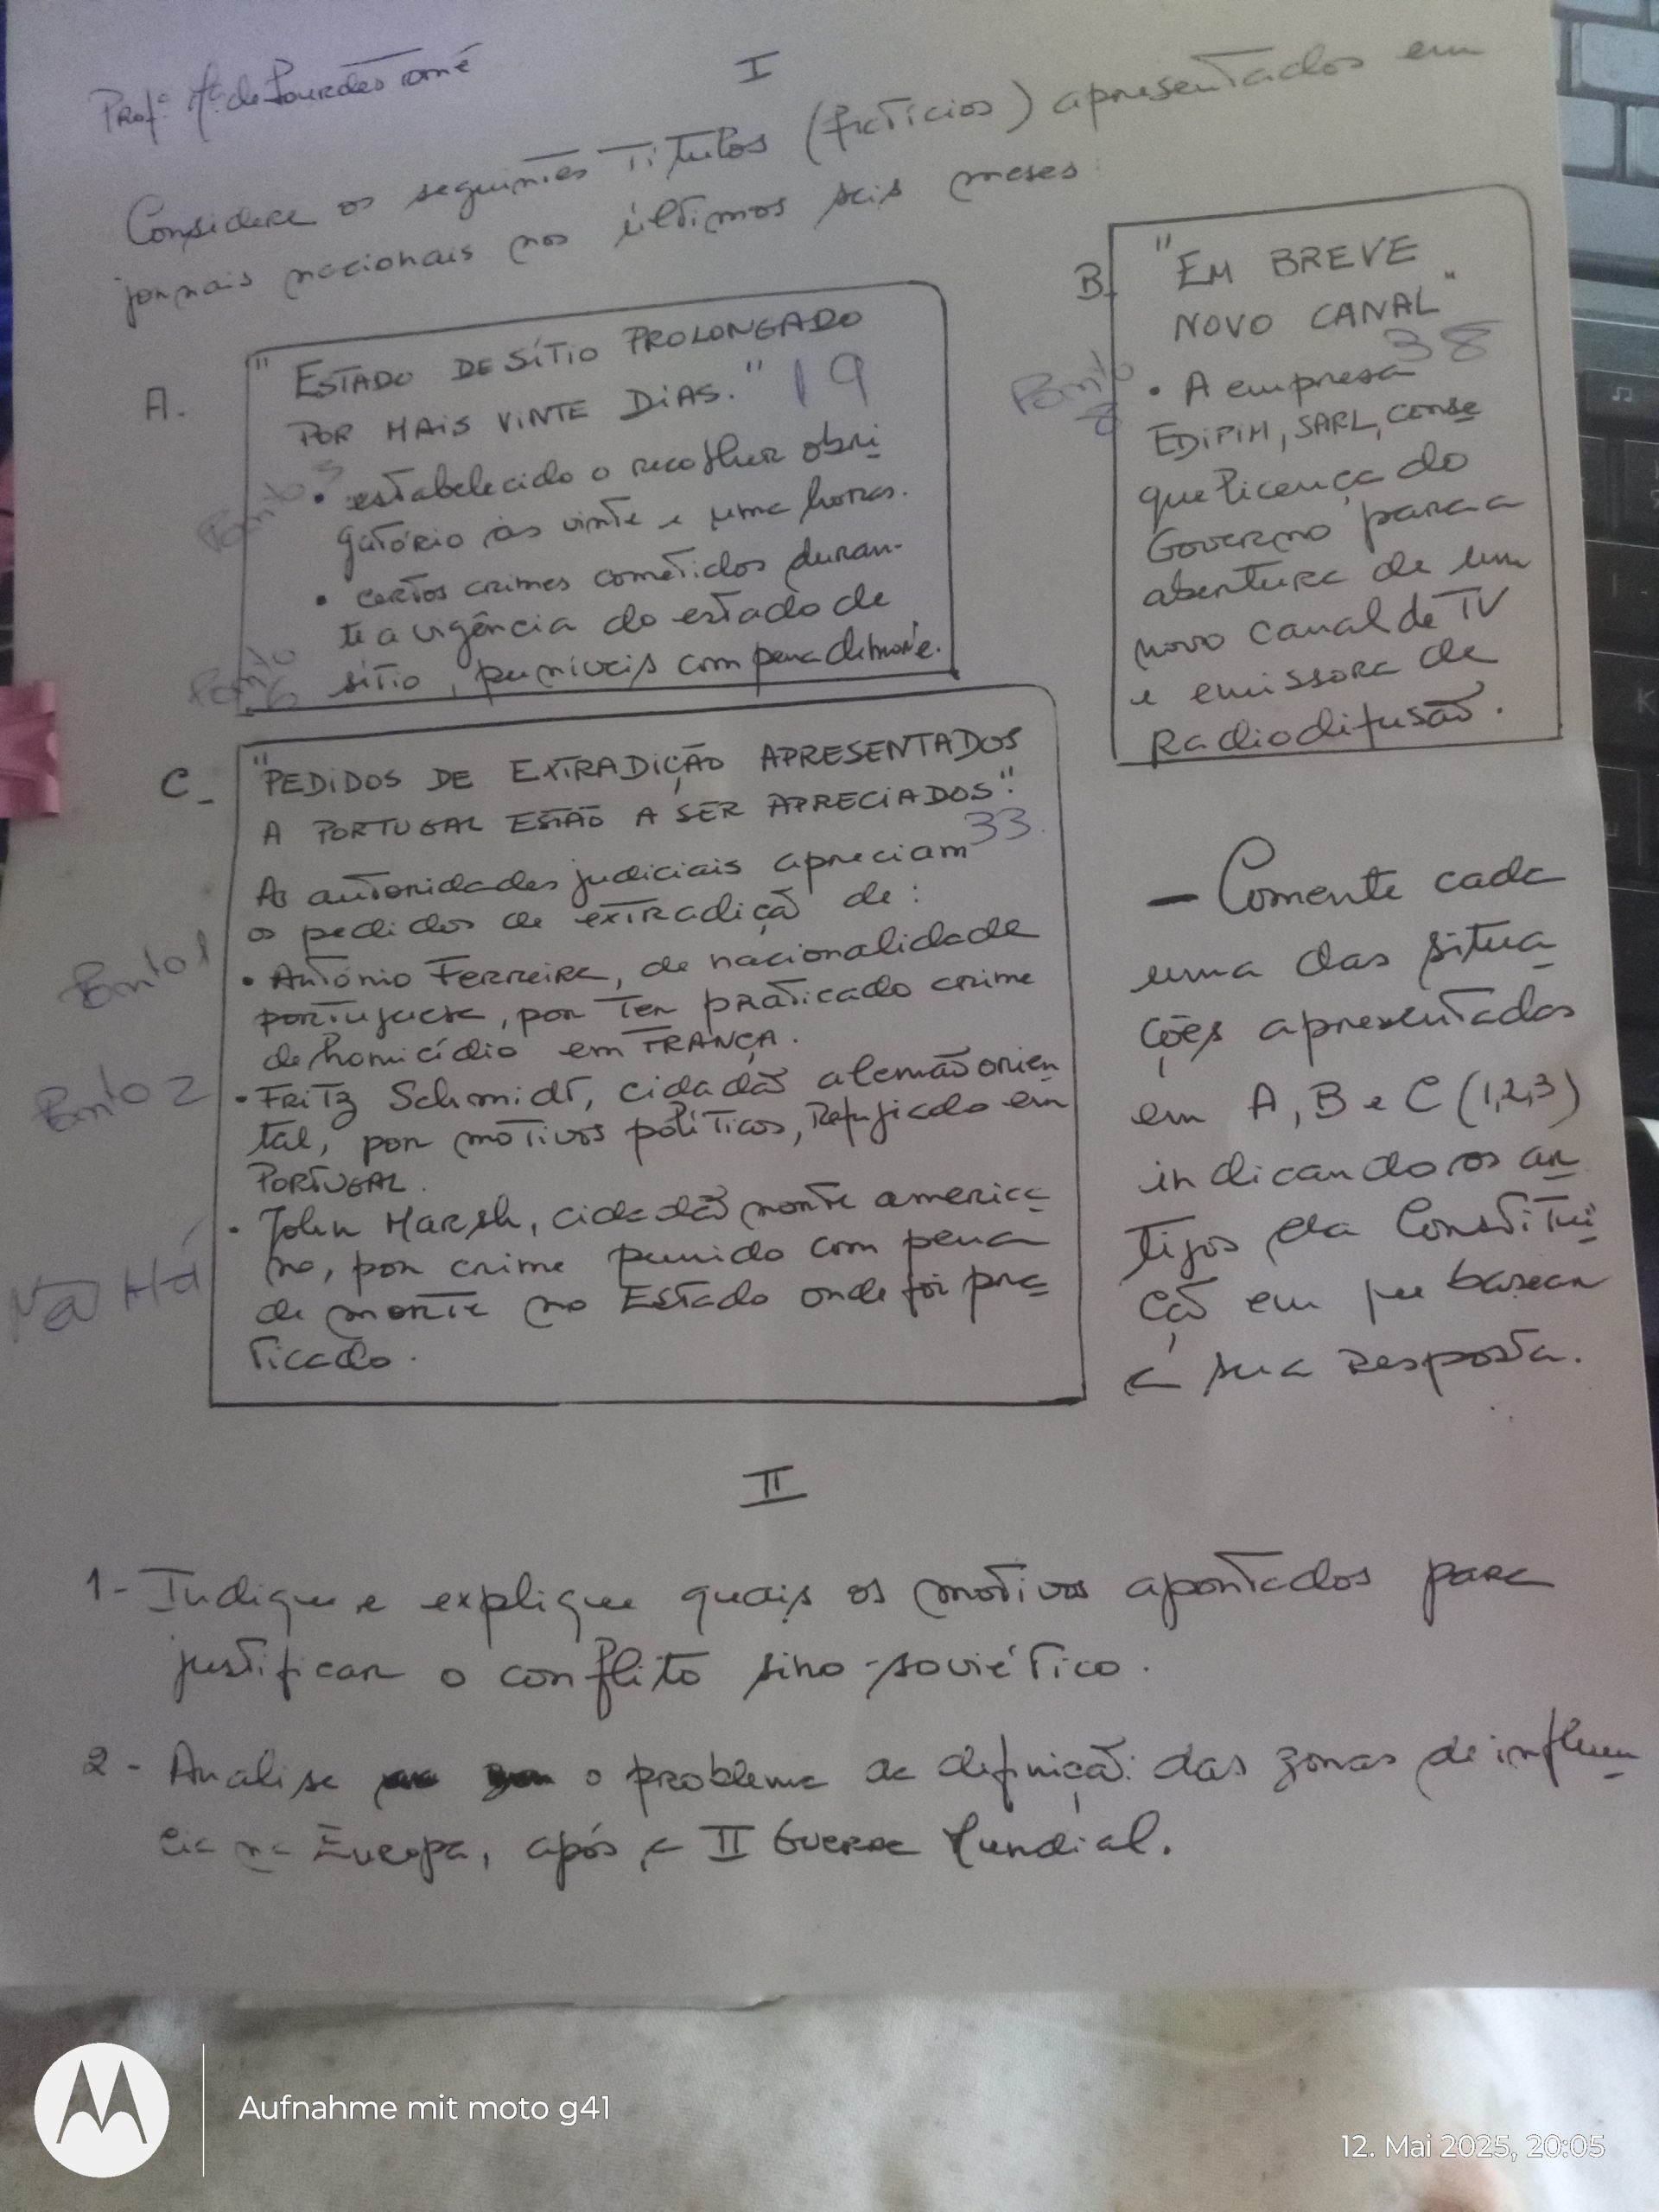 Prof.ª Mª de Lourdes Tomé
I
Considere os seguintes Titulos (fictícios) apresentados em
jornais nacionais nos últimos seis meses:
A.
"ESTADO DE SÍTIO PROLONGADO
POR MAIS VINTE DIAS." 19
Ponto 3
• estabelecido o recolher obri
gatório às vinte e uma horas.
• certos crimes cometidos duran-
te a vigência do estado de
Ponto 6
sítio, puníveis com pena de morte.
B.
"EM BREVE
NOVO CANAL"
38
Ponto 8
• A empresa
EDIPIM, SARL, conse
gue licença do
Governo para a
abertura de um
novo canal de TV
e emissora de
Radiodifusão.
C_
"PEDIDOS DE EXTRADIÇÃO APRESENTADOS
A PORTUGAL ESTÃO A SER APRECIADOS".
33
As autoridades judiciais apreciam
os pedidos de extradição de:
Ponto 1
• António Ferreira, de nacionalidade
portuguesa, por ter praticado crime
de homicídio em FRANÇA.
Ponto 2
• FRITZ Schmidt, cidadão alemão orien
tal, por motivos políticos, Refugiado em
PORTUGAL.
Não Há
• John Marsh, cidadão norte america
no, por crime punido com pena
de morte no Estado onde foi pra
ticado.
– Comente cada
uma das situa
ções apresentadas
em A, B e C (1,2,3)
indicando os ar
tigos da Constitui
ção em que basear
a sua resposta.
II
1- Indique e explique quais os motivos apontados para
justificar o conflito sino-soviético.
2- Analise o problema da definição das zonas de influên
cia na Europa, após a II Guerra Mundial.
Aufnahme mit moto g41
12. Mai 2025, 20:05